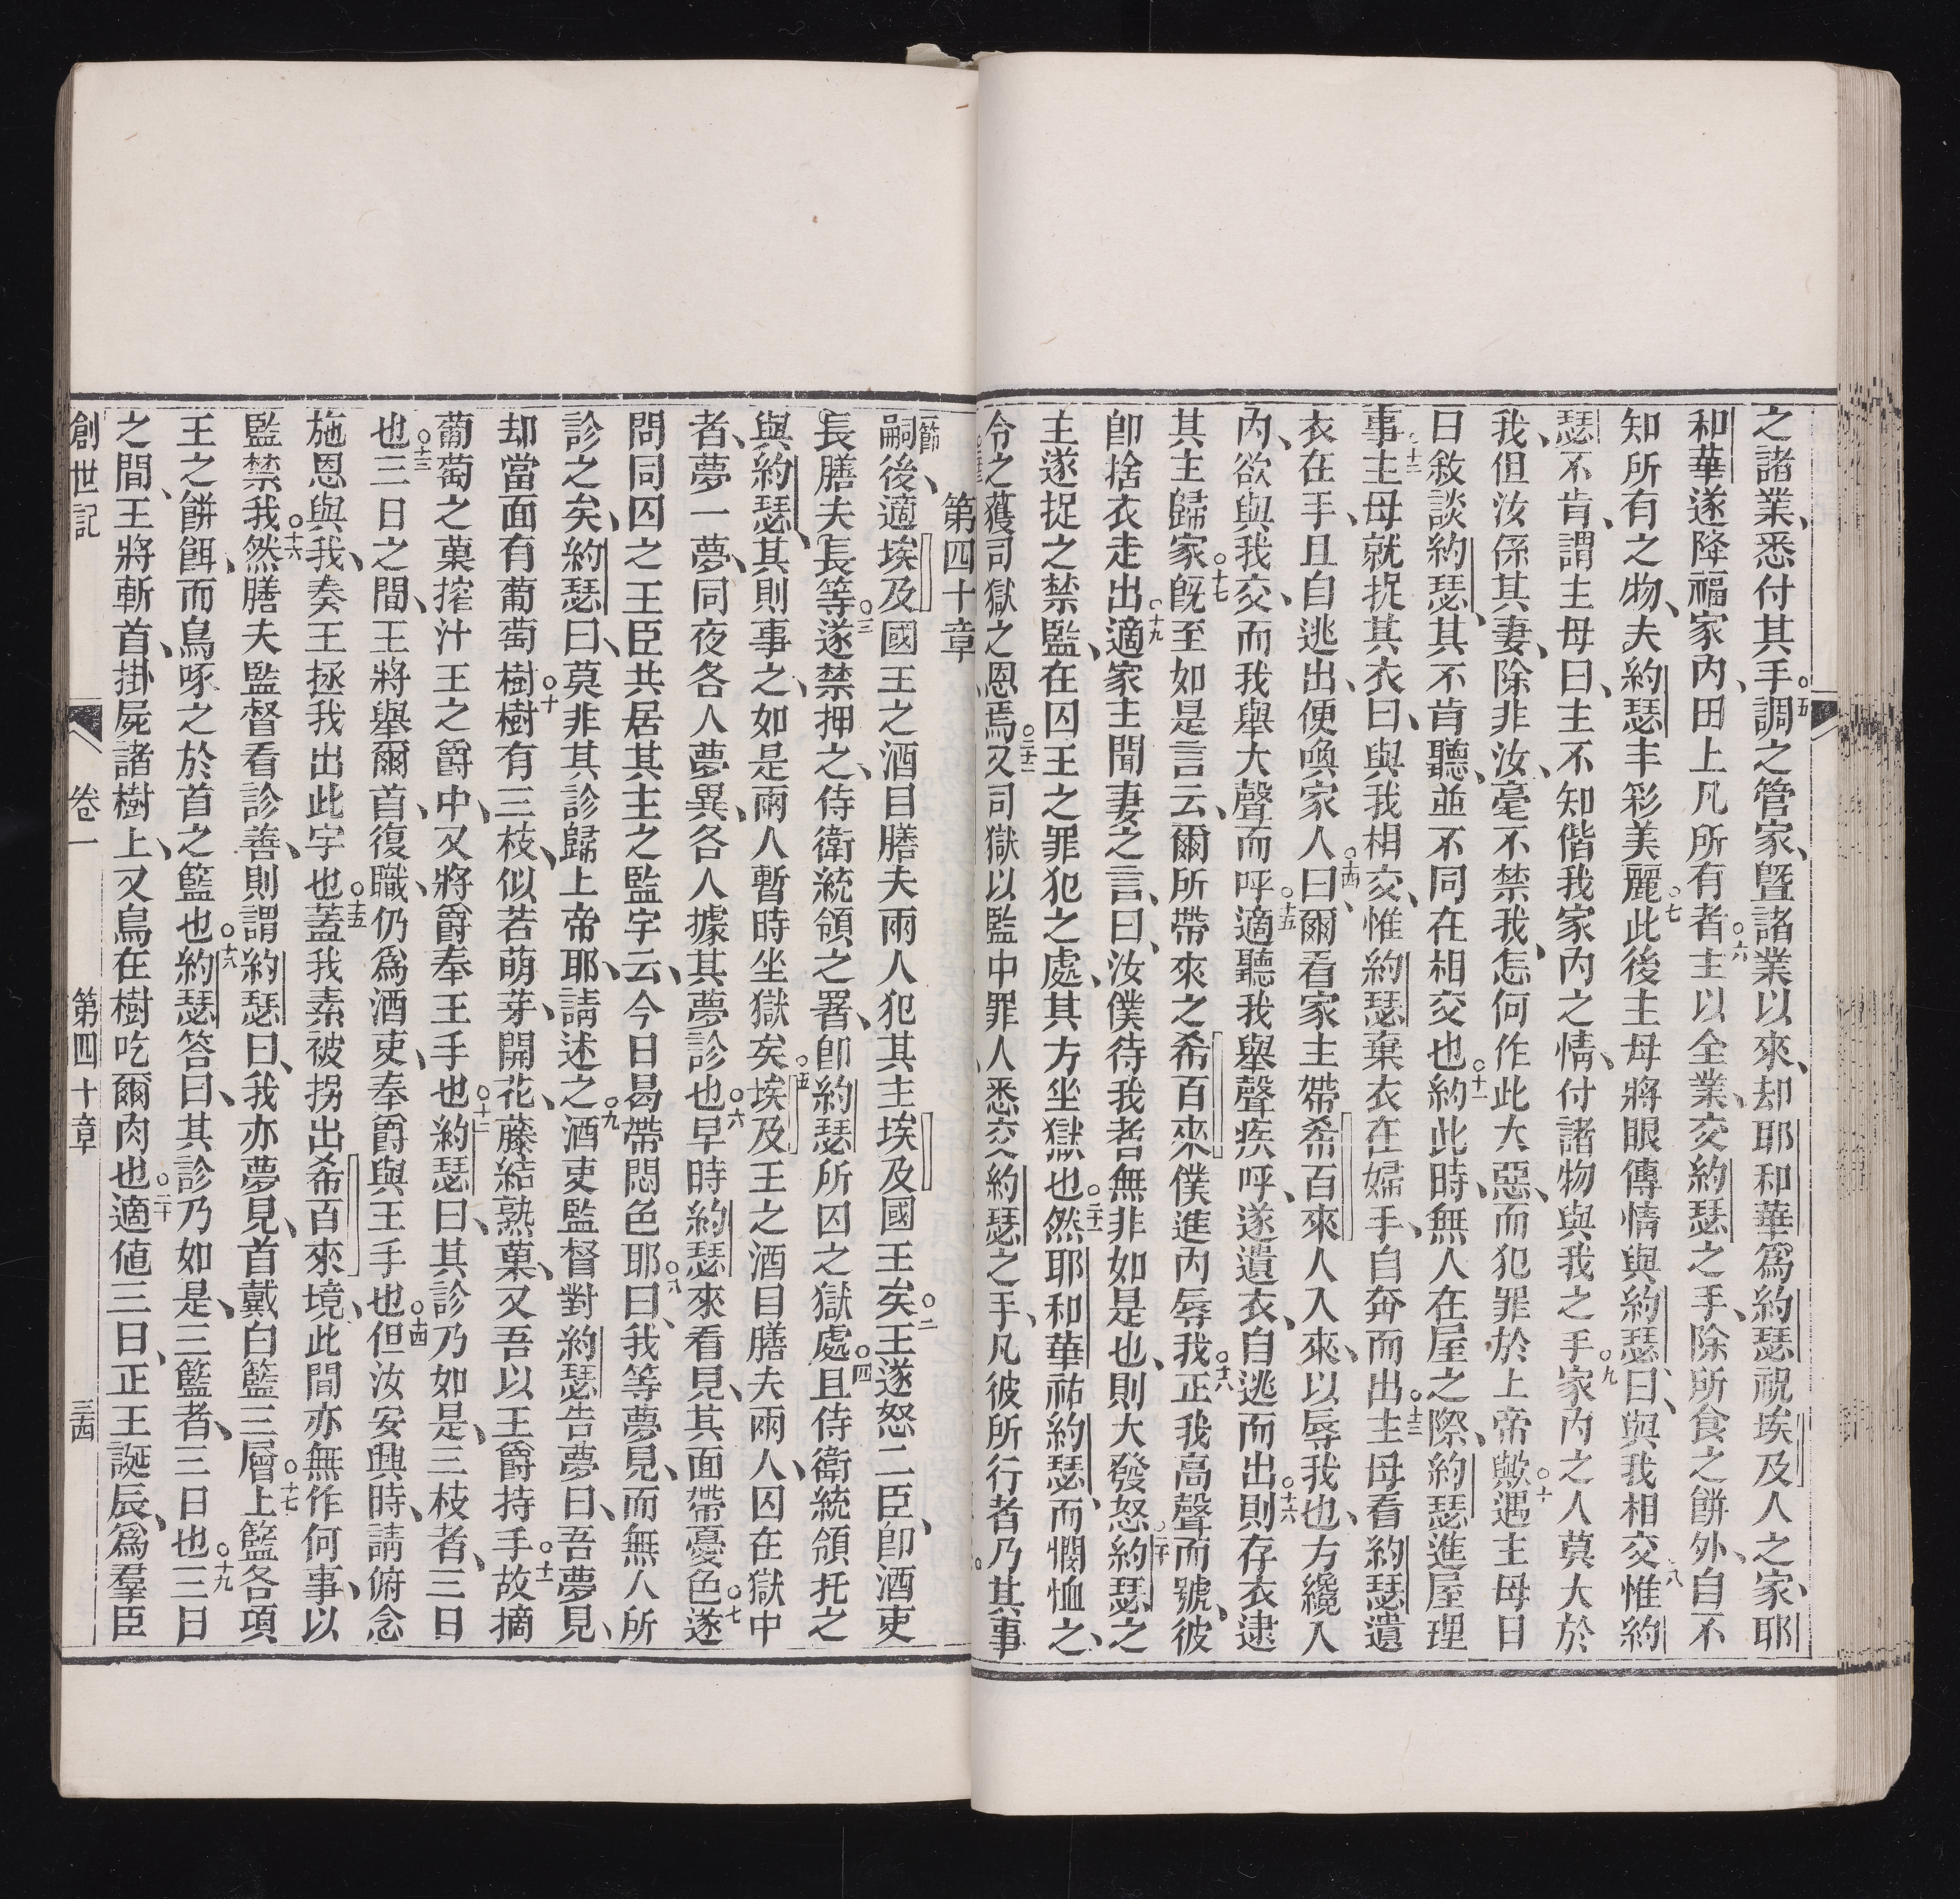 之諸業、悉付其手、○五調之管家、曁諸業以來、却耶和華爲約瑟視埃及人之家、耶
和華遂降福家內、田上凡所有者、○六主以全業、交約瑟之手、除所食之餅外、自不
知所有之物、夫約瑟丰彩美麗、○七此後主母將眼傳情與約瑟曰、與我相交、○八惟約
瑟不肯、謂主母曰、主不知偕我家內之情、付諸物與我之手、○九家內之人莫大於
我、但汝係其妻、除非汝、毫不禁我、怎何作此大惡、而犯罪於上帝歟、○十遇主母日
日敘談約瑟、其不肯聽、並不同在相交也、○十一約此時、無人在屋之際、約瑟進屋理
事、○十二主母就捉其衣曰、與我相交、惟約瑟棄衣在婦手、自奔而出、○十三主母看約瑟遺
衣在手、且自逃出、便喚家人○十四曰、爾看家主帶希百來人入來、以辱我也、方纔入
內、欲與我交、而我舉大聲而呼、○十五適聽我舉聲疾呼、遂遺衣、自逃而出、○十六則存衣逮
其主歸家、○十七旣至如是言云、爾所帶來之希百來僕進內辱我、○十八正我高聲而號、彼
卽捨衣走出、○十九適家主聞妻之言、曰、汝僕待我者、無非如是也、則大發怒、○二十約瑟之
主遂捉之禁監、在囚王之罪犯之處、其方坐獄也、○二十一然耶和華祐約瑟、而憫恤之、
令之獲司獄之恩焉、○二十二又司獄以監中罪人、悉交約瑟之手、凡彼所行者、乃其事
第四十章
節嗣後、適埃及國王之酒目膳夫兩人犯其主埃及國王矣、○二王遂怒二臣、卽酒吏
長膳夫長等、○三遂禁押之、侍衛統領之署、卽約瑟所囚之獄處、○四且侍衛統領托之
與約瑟、其則事之、如是兩人暫時坐獄矣、○五埃及王之酒目膳夫兩人、囚在獄中
者、夢一夢、同夜各人夢異、各人據其夢診也、○六早時約瑟來看見、其面帶憂色、○七遂
問同囚之王臣共居其主之監字云、今日曷帶悶色耶、○八曰、我等夢見、而無人所
診之矣、約瑟曰、莫非其診歸上帝耶、請述之、○九酒吏監督對約瑟告夢曰、吾夢見、
却當面有葡萄樹、○十樹有三枝、似若萌芽、開花、藤結熟菓、○十一又吾以王爵持手、故摘
葡萄之菓搾汁王之爵中、又將爵奉王手也、○十二約瑟曰、其診乃如是、三枝者、三日
也、○十三三日之間、王將舉爾首、復職、仍爲酒吏、奉爵與王手也、○十四但汝安興時、請俯念
施恩與我、奏王拯我出此字也、○十五蓋我素被拐出希百來境、此間亦無作何事、以
監禁我、○十六然膳夫監督看診善、則謂約瑟曰、我亦夢見、首戴白籃三層、○十七上籃各項
王之餅餌、而鳥啄之於首之籃也、○十八約瑟答曰、其診乃如是、三籃者、三日也、○十九三日
之間、王將斬首、掛屍諸樹上、又鳥在樹吃爾肉也、○二十適値三日、正王誕辰、爲羣臣
創世記　卷一　第四十章　三四